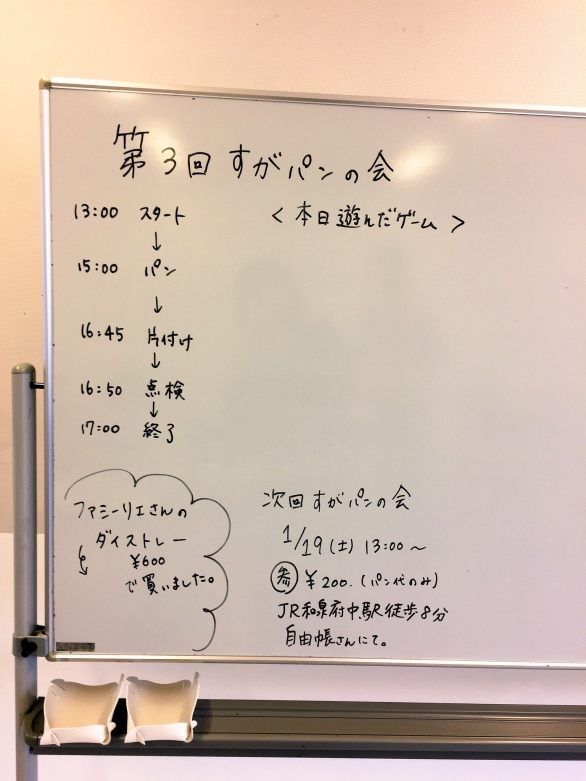 第3回 すがパンの会
13:00 スタート
↓
15:00 パン
↓
16:45 片付け
↓
16:50 点検
↓
17:00 終了
<本日遊んだゲーム>
ファミーリエさんの
ダイストレー
¥600
で買いました。
次回 すがパンの会
1/19(土) 13:00〜
参 ¥200.(パン代のみ)
JR和泉府中駅 徒歩8分
自由帳さんにて。